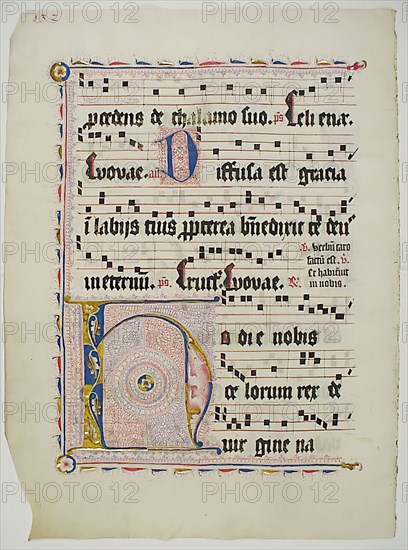 pcedens de thalamo suo. ps Celi enar.
Evovae. an̄ Diffusa est gracia
ī labijs tuis ppterea b̄nedixit te deꝰ
in eternū. ps. Eruct. Evovae. R.
v. Verbū caro
factū est. v.
et habitavit
in nobis.
Hodie nobis
celorum rex de
virgine na